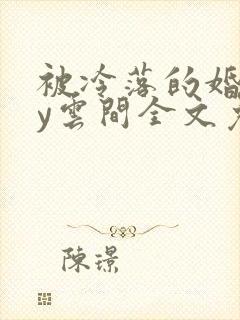 被冷落的婚
y雲間全文
陳璟